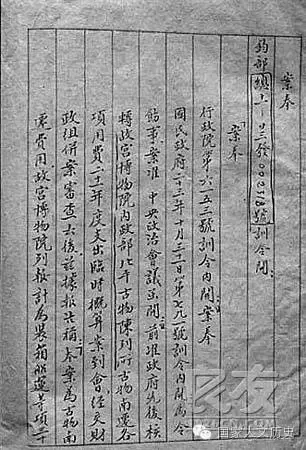 案奉
鈞部總
號訓令開：
「案奉
行政院第六一五三號訓令內開：案奉
國民政府二十三年十月三十一日第七九號訓令內開為令
飭事案准 中央政治會議函開：前准政府先後核
轉故宮博物院內政部北平古物陳列所古物南遷各
項用費二十二年度支出臨時概算案到會經交財
政組併案審查去後茲據報告稱本案為古物南
遷費用故宮博物院列報計為裝箱船運等項
国家人文历史